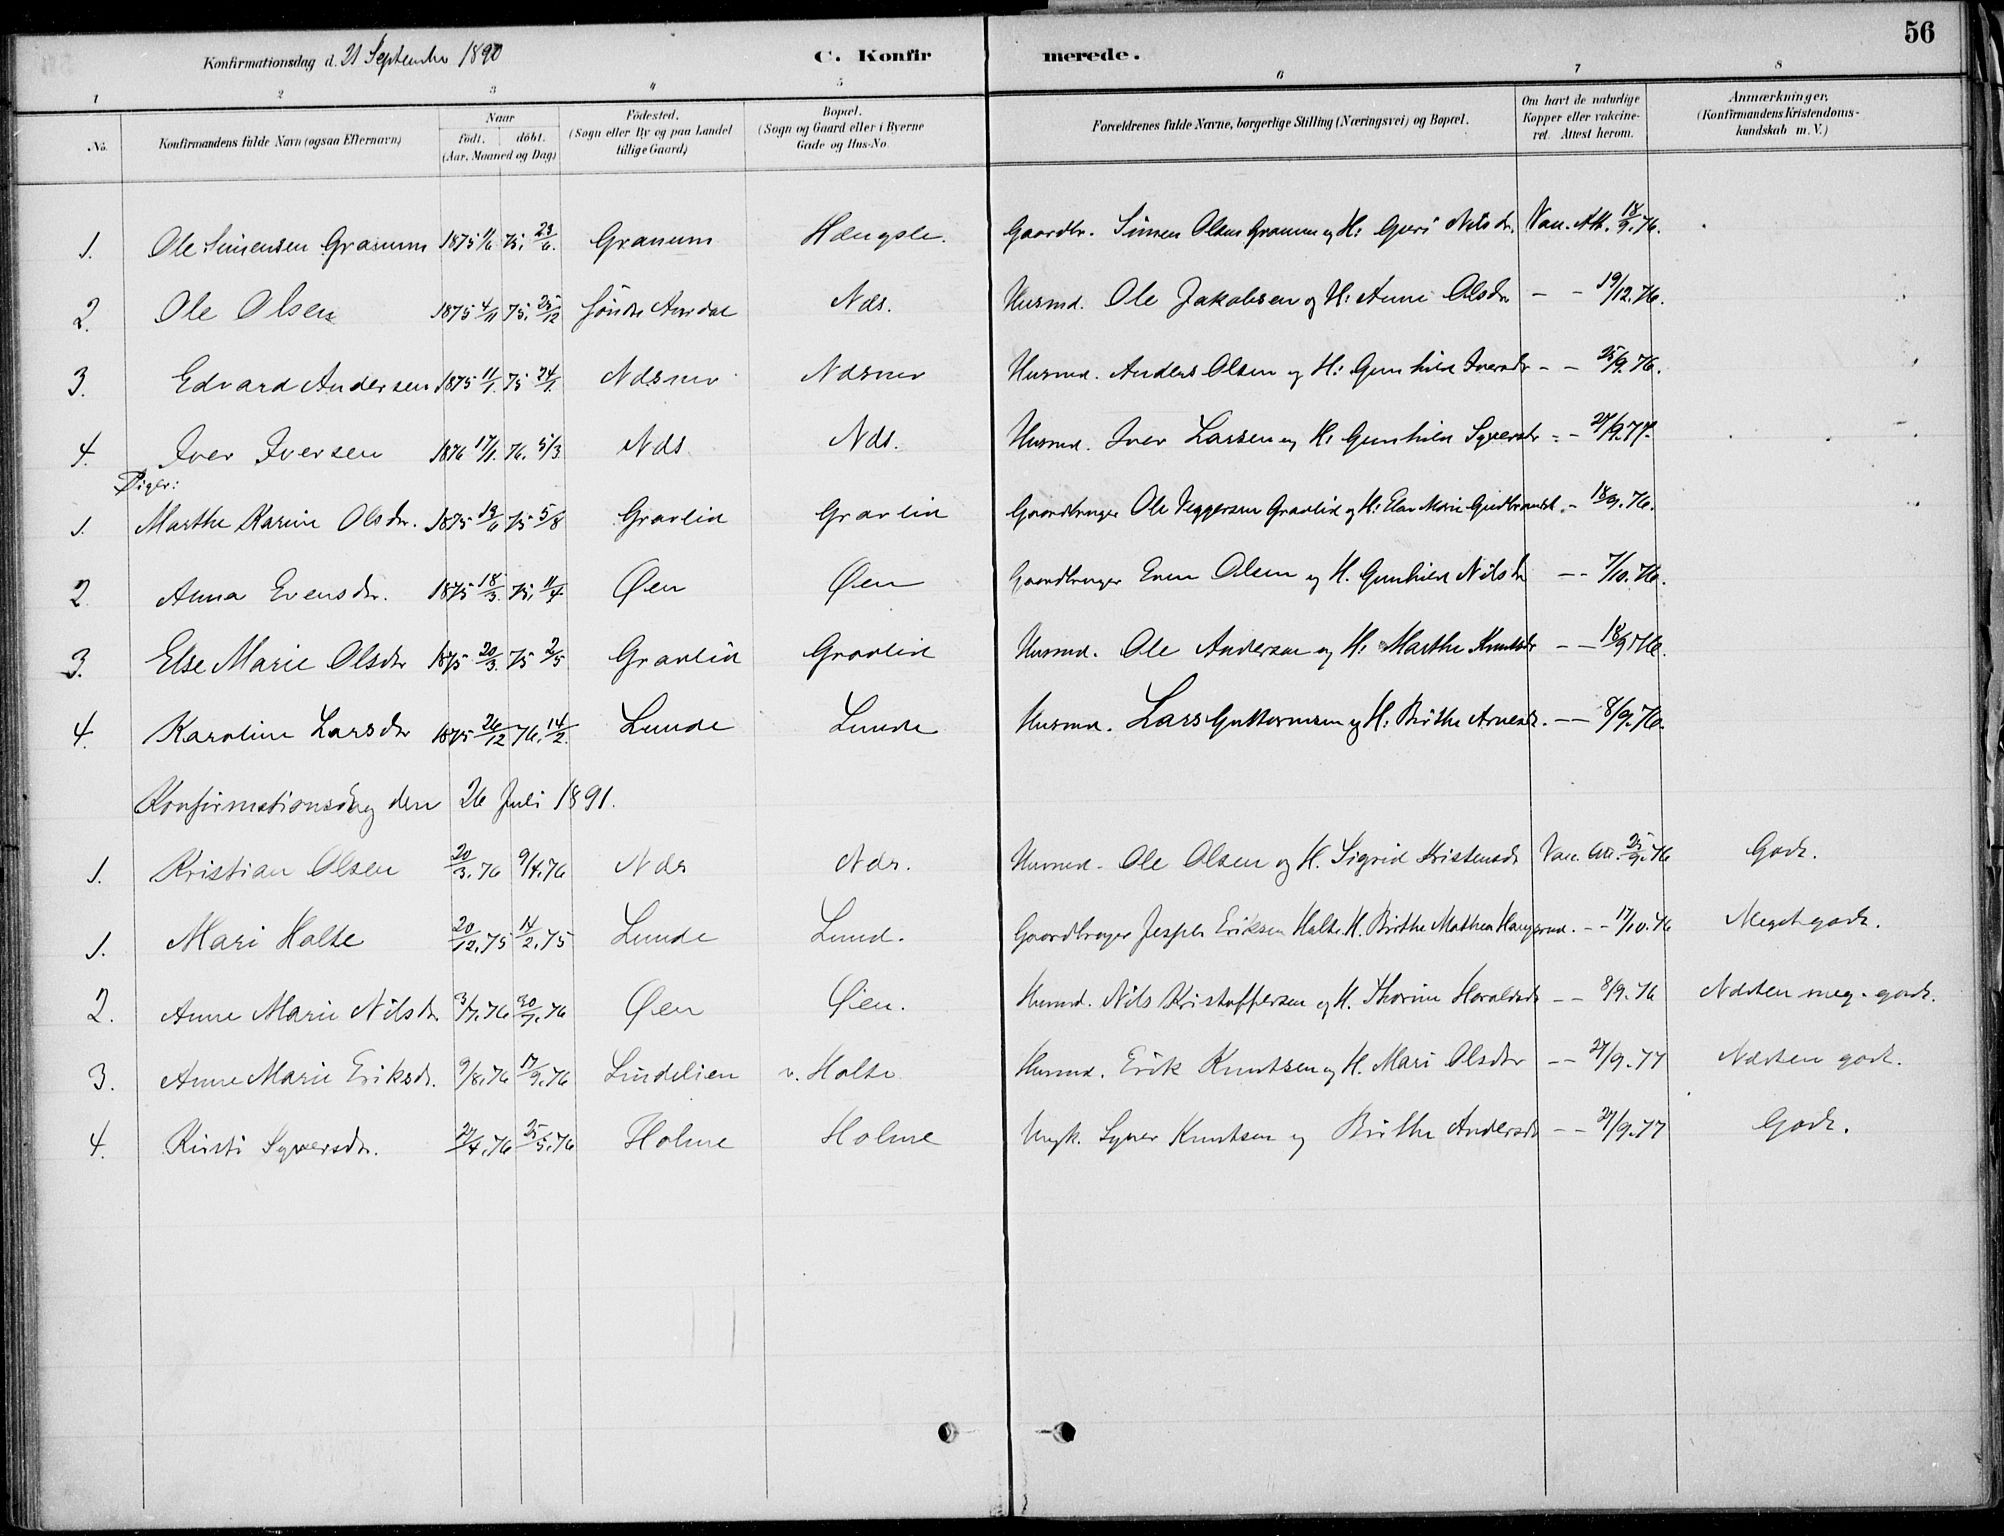 56
Konfirmationsdag d. 21 September 1890
C. Konfirmerede.
1 2 3 4 5 6 7 8
No. Konfirmandens fulde Navn (ogsaa Efternavn) Naar födt. döbt. (Aar, Maaned og Dag) Födested. (Sogn eller By og paa Landet tillige Gaard) Bopæl. (Sogn og Gaard eller i Byerne Gade og Hus-No. Forældrenes fulde Navne, borgerlige Stilling (Næringsvei) og Bopæl. Om havt de naturlige Kopper eller vakcineret. Attest herom. Anmærkninger, (Konfirmandens Kristendomskundskab m. V.)
1. Ole Simensen Granum 1875 11/6 75. 23/6. Granum Hængsle. Gaardbr. Simen Olsen Granum og H: Guri Nilsdr. Vac. Att. 18/9.76.
2. Ole Olsen 1875 4/11 75. 25/12 Söndre Aurdal Nds. Husmd. Ole Jakobsen og H: Anne Olsdr - - 19/12.76.
3. Edvard Andersen 1875 11/1. 75 24/1. Ndsnes Ndsnes Husmd. Anders Olsen og H: Gunhild Iversdr - - 25/9.76.
4. Iver Iversen 1876 17/1. 76. 5/3 Nds. Nds. Husmd. Iver Larsen og H: Gunhild Syversdr - - 27/9.77.
Piger:
1. Marthe Karine Olsdr. 1875 19/6 75 5/8 Gravlid Gravlid Gaardbruger Ole Veggersen Gravlid og H: Else Marie Gudbrandsd. - 18/9.76.
2. Anna Evensdr. 1875 18/3. 75. 11/4 Øen Øen Gaardbruger Even Olsen og H. Gunhild Nilsdr - - 7/10.76.
3. Else Marie Olsdr 1875 20/3. 75 2/5 Gravlid Gravlid Husmd. Ole Andersen og H: Marthe Knutsdr - - 18/9 76.
4. Karoline Larsdr 1875 26/12 76. 14/2. Lunde Lunde Husmd. Lars Guttormsen og H: Birthe Arnesdr. - - 8/9.76.
Konfirmationsdag den 26 Juli 1891.
1. Kristian Olsen 20/3.76 9/4.76 Nds Nds. Husmd. Ole Olsen og H. Sigrid Kristensdr Vac. Att. 25/9.76 Godt.
1. Mari Holte 20/12.75 14/2.75 Lunde Lund. Gaardbruger Jesper Eriksen Holte H. Birthe Mathea Haugerud. - - 17/10.76 Meget godt.
2. Anne Marie Nilsdr 3/7.76 30/7.76 Øen Øien. Husmd. Nils Kristoffersen og H. Thorine Haraldsdr - - 8/9.76 Næsten meg. godt.
3. Anne Marie Eriksdr. 9/8.76 17/9.76 Lindelien v. Holte Husmd. Erik Knutsen og H. Mari Olsdr - - 27/9.77 Næsten godt.
4. Kirsti Syversdr. 27/4.76 25/5.76 Holme Holme Ungk. Syver Knutsen og Birthe Andersdr - - 27/9.77 Godt.